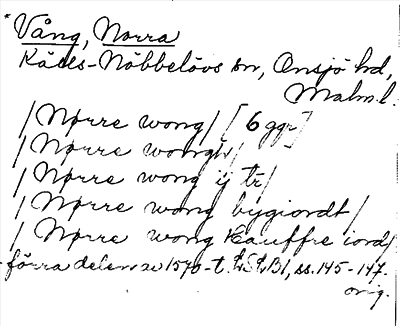 * Vång, Norra
Räcks-Nöbbelövs sn, Onsjö hd,
Malm.l.
/Nørre wong/ [6 ggr]
/Nørre wongh/
/Nørre wong ij tr/
/Nørre wong bygiordt/
/Nørre wong Kauffre iord/
förra delen av 1570-t. LSLB1, ss. 145-147.
orig.